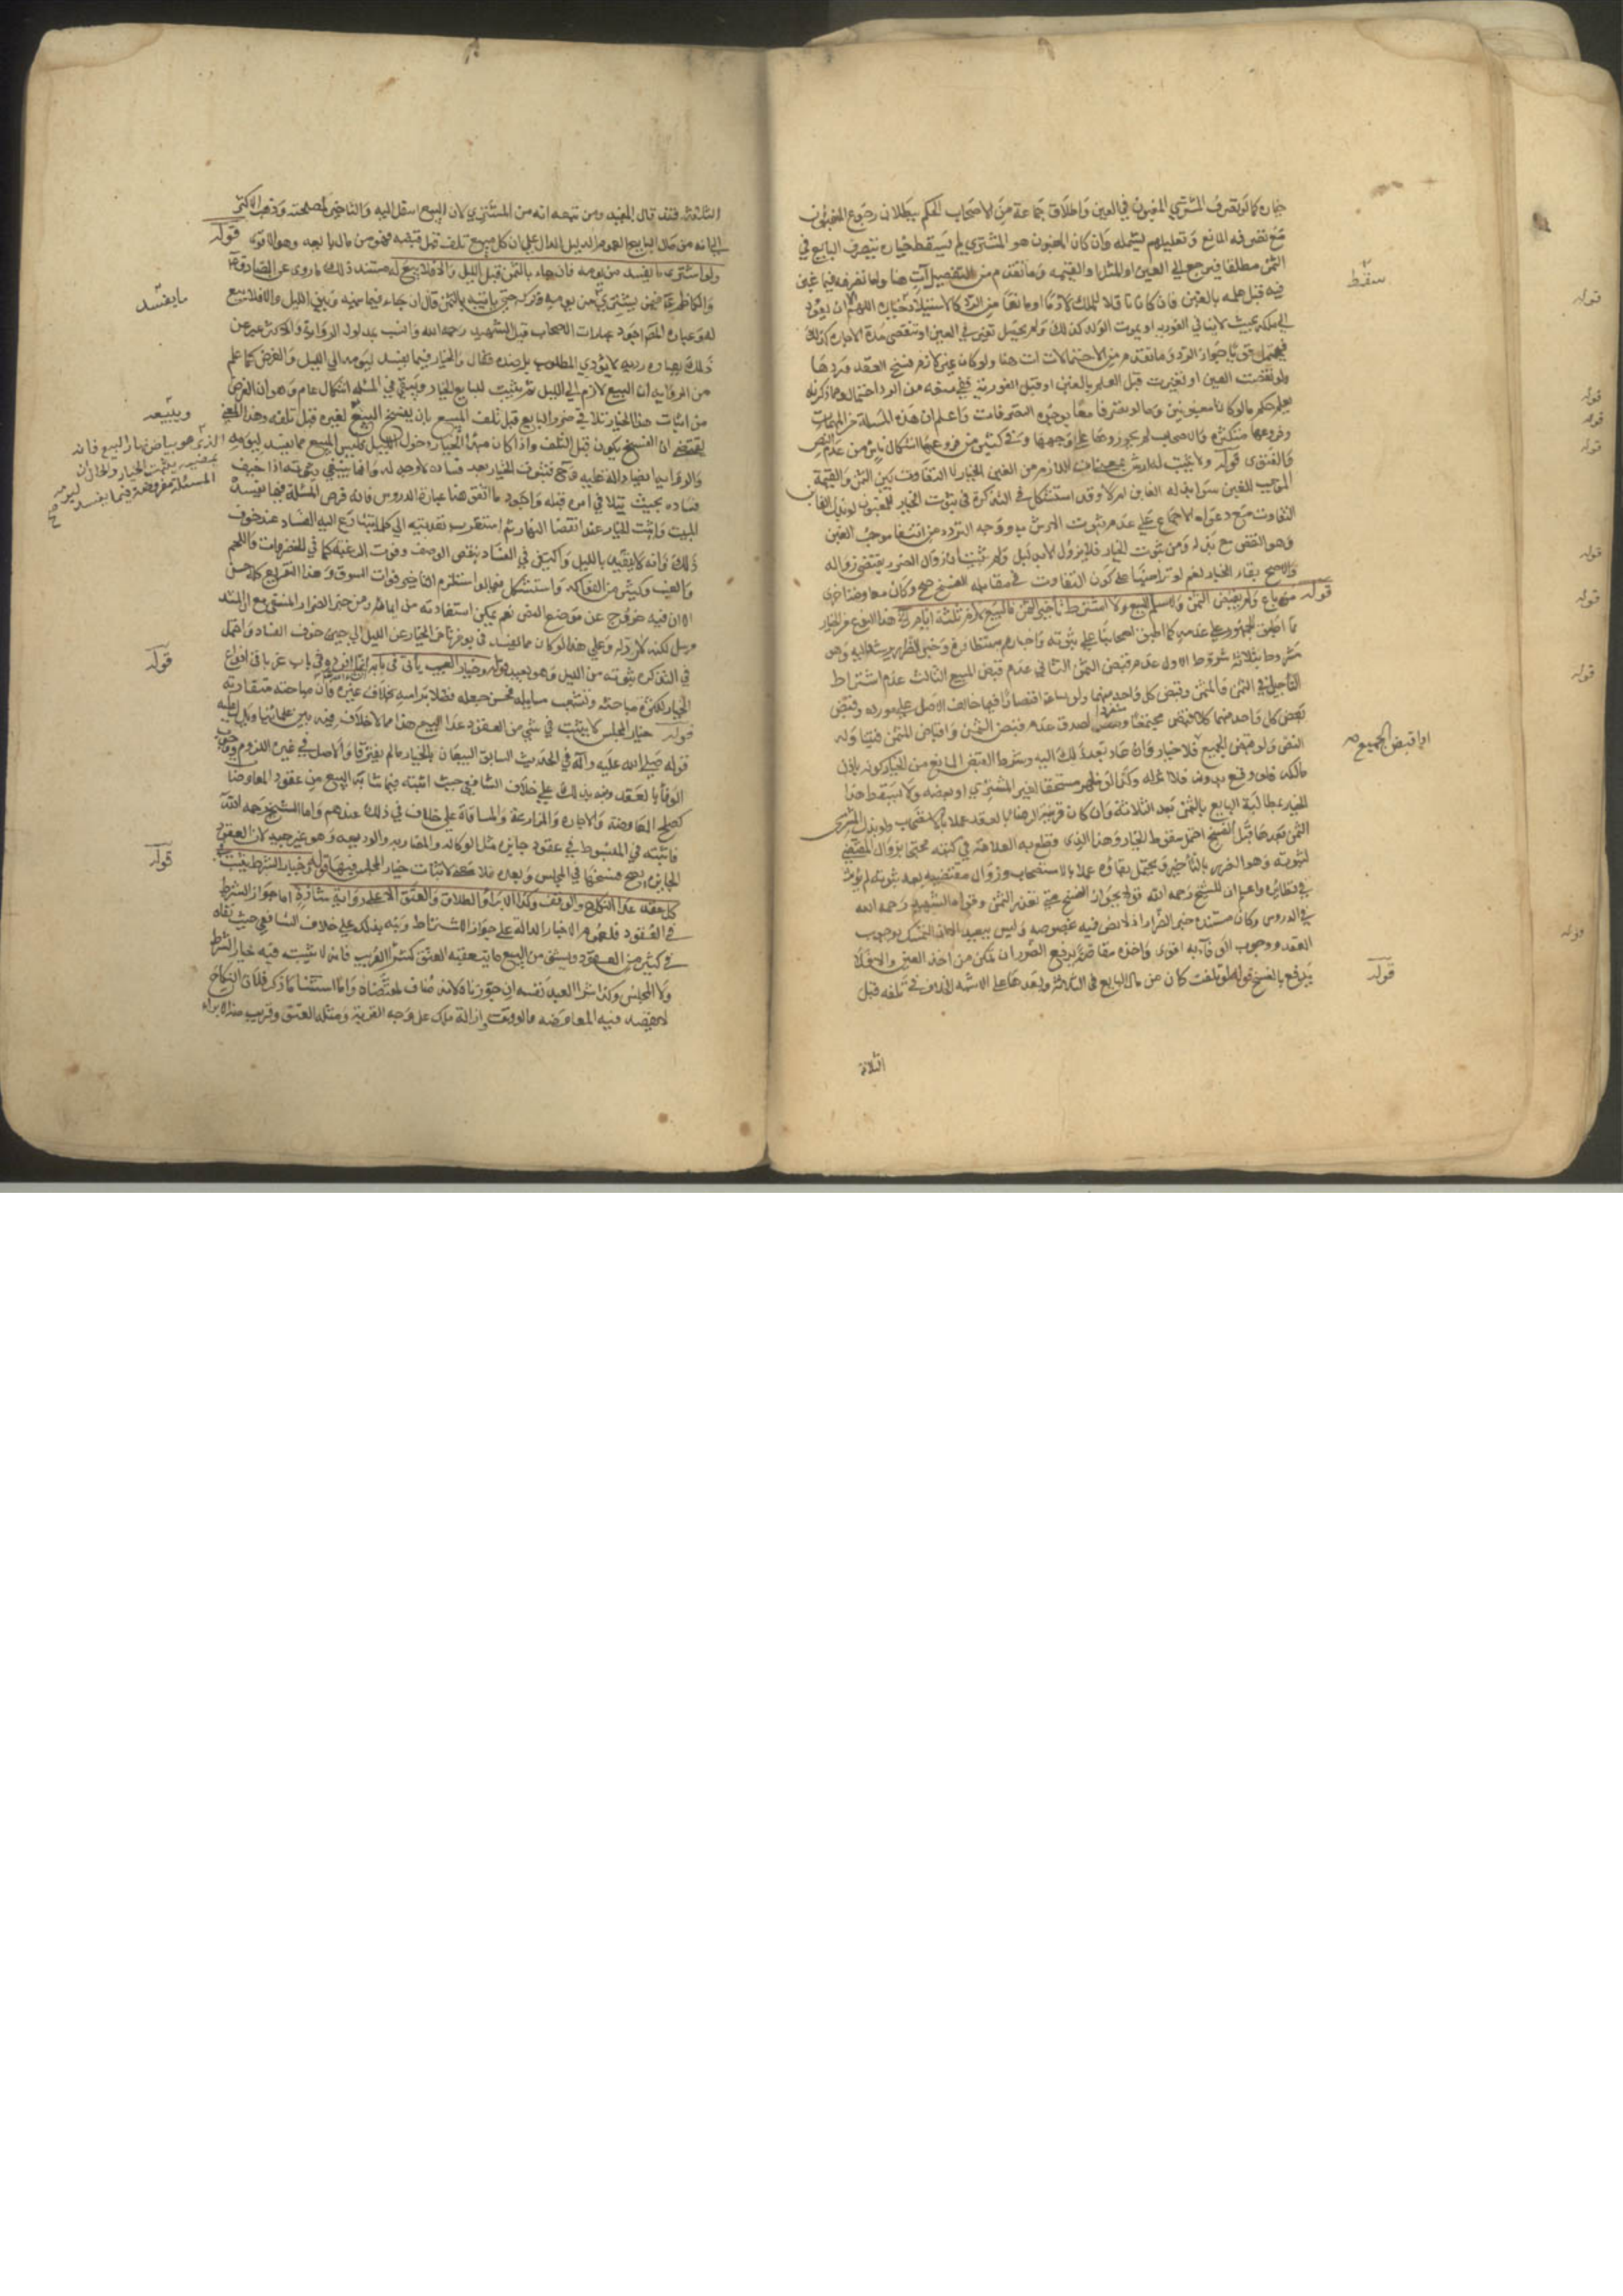 خياره كما لو تصرف المشتري المغبون في العين واطلاق جماعة من الاصحاب الحكم ببطلان رجوع المغبون
مع تصرفه المانع وتعليلهم يشمله وان كان المغبون هو المشتري لم يسقط خياره بتصرف البايع في
الثمن مطلقا فيرجع الى العين او المثل او القيمة وما تقدم من التفصيل آت هنا ولما تصرفه فيما غبن
سقط
فيه قبل علمه بالغبن فان كان ناقلا للملك لازما او مانعا من الرد كالاستيلاد خياره اللهم الا ان يعود
الى ملكه بحيث لا ينافي الفورية او يموت الولد كذلك ولم يحصل تغير في العين او تنقضي مدة الاجارة كذلك
فيحتمل جواز الرد وما تقدم من الاحتمالات آت هنا ولو كان غير لازم فسخ العقد فردها
ولو نقصت العين او تغيرت قبل العلم بالغبن او قبل الفورية ففي منعه من الرد احتمال ومما ذكرناه
يعلم حكم ما لو كانا مغبونين وما لو تصرفا معا بوجوه التصرفات واعلم ان هذه المسئلة من المهمات
وفروعها متكثرة والاصحاب لم يحرروها على وجهها وفي كثير من فروعها اشكال ناش من عدم النص
والفتوى قوله ولا يثبت له ارش
الموجب للغبن سواء بذله الغابن ام لا وقد استشكل في التذكرة في ثبوت الخيار للمغبون لو بذل الغابن
التفاوت مع دعواه الاجماع على عدم ثبوت الارش به ووجه التردد من انتفاء موجب الغبن
وهو النقص مع بذله ومن ثبوت الخيار فلا يزول لا بدليل ولم يثبت ان زوال الضرر يقتضي زواله
والاصح بقاء الخيار نعم لو تراضيا على كون التفاوت في مقابلة الفسخ صح وكان معاوضة اخرى
قوله من باع ولم يقبض الثمن ولا سلم المبيع ولا اشترط تأخير الثمن فالبيع لازم ثلثة ايام الخ هذا النوع من الخيار
ما اطبق الجمهور على عدمه كما اطبق اصحابنا على ثبوته واخبارهم متظافرة وخبر الضرر يرشد اليه وهو
مشروط بثلاثة شروط الاول عدم قبض الثمن الثاني عدم قبض المبيع الثالث عدم اشتراط
التأجيل في الثمن والمثمن وقبض كل واحد منهما ولو ساعة اقتصارا فيما خالف الاصل على مورده وقبض
بعض كل واحد منهما كلا قبض مجتمعا ومنفردا لصدق عدم قبض الثمن واقباض المثمن فيتناوله
او اقبض الجميع صح
النص ولو قبض الجميع فلا خيار وان عاد بعد ذلك اليه وشرط القبض المانع من الخيار كونه باذن
مالكه فلو وقع بدونه فلا اثر له وكذا لو ظهر مستحقا لغير المشتري او بعضه ولا يسقط هذا
الخيار بمطالبة البايع بالثمن بعد الثلاثة وان كان قرينة الرضا بالعقد عملا بالاستصحاب ولو بذل المشتري
الثمن بعدها قبل الفسخ احتمل سقوط الخيار وهذا الذي قطع به العلامة في كتبه محتجا بزوال المقتضي
لثبوته وهو الضرر بالتأخير ويحتمل بقاؤه عملا بالاستصحاب وزوال مقتضيه بعد ثبوته لم يؤثر
في نظايره واعلم ان للشيخ رحمه الله قولا بجواز الفسخ متى تعذر الثمن وقواه الشهيد رحمه الله
في الدروس وكان مستنده خبر الضرار اذ لا نص فيه بخصوصه وليس ببعيد الا ان التمسك بوجوب
العقد ووجوب الوفاء به اقوى واخذه مقاصة يرفع الضرر ان تمكن من اخذ العين والا فلا
يرفع بالفسخ قوله ولو تلفت كان من مال البايع في الثلاثة وبعدها على الاشبه الخلاف في تلفه قبل
قوله
الثلاثة
الثلثة فقد قال المفيد ومن تبعه انه من المشتري لان المبيع انتقل اليه والتاخير لمصلحته وذهب الاكثر
الى انه من مال البايع لعموم الدليل الدال على ان كل مبيع تلف قبل قبضه فهو من مال بايعه وهو الاقوى قوله
ولو اشترى ما يفسد من يومه فان جاء بالثمن قبل الليل والا فلا بيع له مستند ذلك ما روي عن الصادق
ما يفسد
والكاظم عليهما فيمن يشتري من يومه ويتركه حتى ياتيه بالثمن قال ان جاء فيما بينه وبين الليل والا فلا بيع
له وعبارة المص اجود عبارات الاصحاب قبل الشهيد رحمه الله وانسب بمدلول الرواية والاكثر عبر عن
ذلك بعبارة ردية لا يؤدي المطلوب بل ضده فقال والخيار فيما يفسد ليومه الى الليل والغرض كما علم
من الرواية ان البيع لازم الى الليل ثم يثبت للبايع الخيار ويبقى في المسئلة اشكال عام وهو ان الغرض
من اثبات هذا الخيار تلافي ضرر البايع قبل تلف المبيع بان يفسخ البيع لغيره قبل تلفه وهذا المعنى
ويبيعه
يقتضي ان الفسخ يكون قبل التلف واذا كان مبدأ الخيار دخول الليل فليس المبيع مما يفسد ليومه
الذي هو بياض نهار البيع فانه
بمضيه يثبت الخيار والحال ان
المسئلة مفروضة فيما يفسد ليومه صح
فساده بحيث يتلافى امره قبله واجود ما اتفق هنا عبارة الدروس فانه فرض المسئلة فيما يفسده
المبيت واثبت الخيار عند انقضاء النهار ثم استقرب تعديته الى كل ما يتسارع اليه الفساد عند خوف
ذلك وانه لا يتقيد بالليل واكتفى في الفساد بنقص الوصف وفوت الرغبة كما في الخضروات واللحم
والعنب وكثير من الفواكه واستشكل فيما لو استلزم التاخير فوات السوق وهذا التفريع كله حسن
الا ان فيه خروج عن موضع النص نعم يمكن استفادته من
مرسل لكنه لا راد له وعلى هذا لو كان مما يفسد في يومين تاخر الخيار عن الليل الى حين خوف الفساد واحتمل
قوله
في التذكرة ثبوته من الليل وهو بعيد قوله وخيار العيب يأتي في بابه انما افرده في باب عن باقي انواع
الخيار لكثرة مباحثه وتشعب مسايله فحسن جعله فصلا برأسه بخلاف غيره فان مباحثه متقاربة
قوله خيار المجلس لا يثبت في شيء من العقود عدا البيع هذا مما لا خلاف فيه بين علمائنا ويدل عليه
قوله صلى الله عليه وآله في الحديث السابق البيعان بالخيار ما لم يفترقا والاصل في غيره اللزوم ووجوب
الوفاء بالعقد ونبه بذلك على خلاف الشافعي حيث اثبته فيما شابه البيع من عقود المعاوضات
كصلح المعاوضة والاجارة والمزارعة والمساقاة على خلاف في ذلك عندهم واما الشيخ رحمه الله
فاثبته في المبسوط في عقود جايزة مثل الوكالة والمضاربة والوديعة وهو غير جيد لان العقود
قوله
الجايزة يصح فسخها في المجلس وبعده فلا معنى لاثبات خيار المجلس فيها قوله وخيار الشرط يثبت في
كل عقد عدا النكاح والوقف وكذا الابراء والطلاق والعتق الا على رواية شاذة اما جواز الشرط
في العقود فلعموم الاخبار الدالة على جواز الاشتراط ونبه بذلك على خلاف الشافعي حيث نفاه
في كثير من العقود ويستثنى من البيع ما يتعقبه العتق كشراء القريب فانه لا يثبت فيه خيار الشرط
ولا المجلس وكذا شراء العبد نفسه ان جوزناه لانه مناف لمقتضاه واما استثناء ما ذكر فلان النكاح
لا يقصد فيه المعاوضة والوقف ازالة ملك على وجه القربة ومثله العتق وقريب منه الابراء